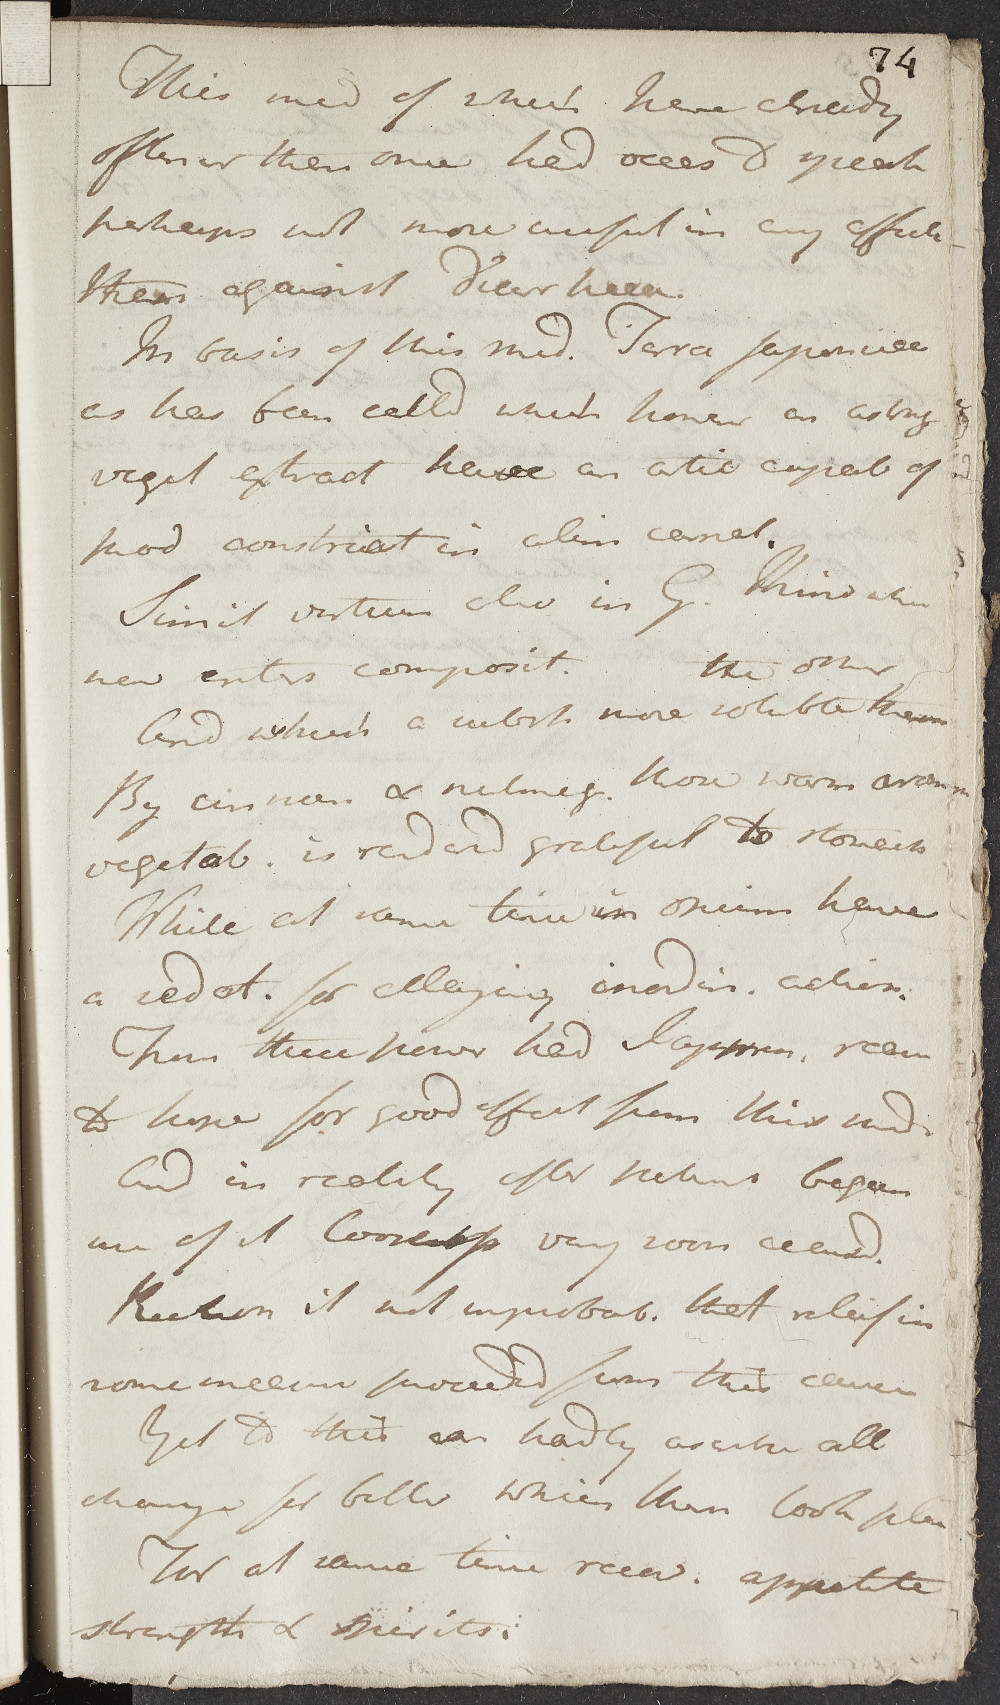 74
This med of which have already
oftener than once had occas to speak
perhaps not more useful in any affect
than against Diarrhea.
In basis of this med. Terra japonica
as has been calld which however an astring
veget extract have an artic capab of
prod constrict in alim canal.
Simil virtues also in G. Kino which
now enters composit. the other
And which a substs more soluble than
By cinnam & nutmeg. those warm aroma
vegetab. is renderd grateful to stomach
While at same time in opium have
a sedat. for allaying inordin. action.
From these power had I apprehen. reason
to hope for good effect from this med.
And in reality after patient began
use of it Looseness very soon ceasd.
Reckon it not improbab. that relief in
some measure proceeded from this cause
Yet to this can hardly ascribe all
change for better which then took place
For at same time recov. appetite
strength & spirits.